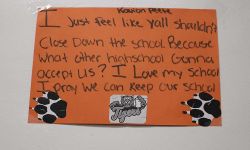 I Just feel like yall shouldn't
Close Down the school Because
what other highschool Gonna
accept us? I Love my school
I Pray we can keep our school
Tigers